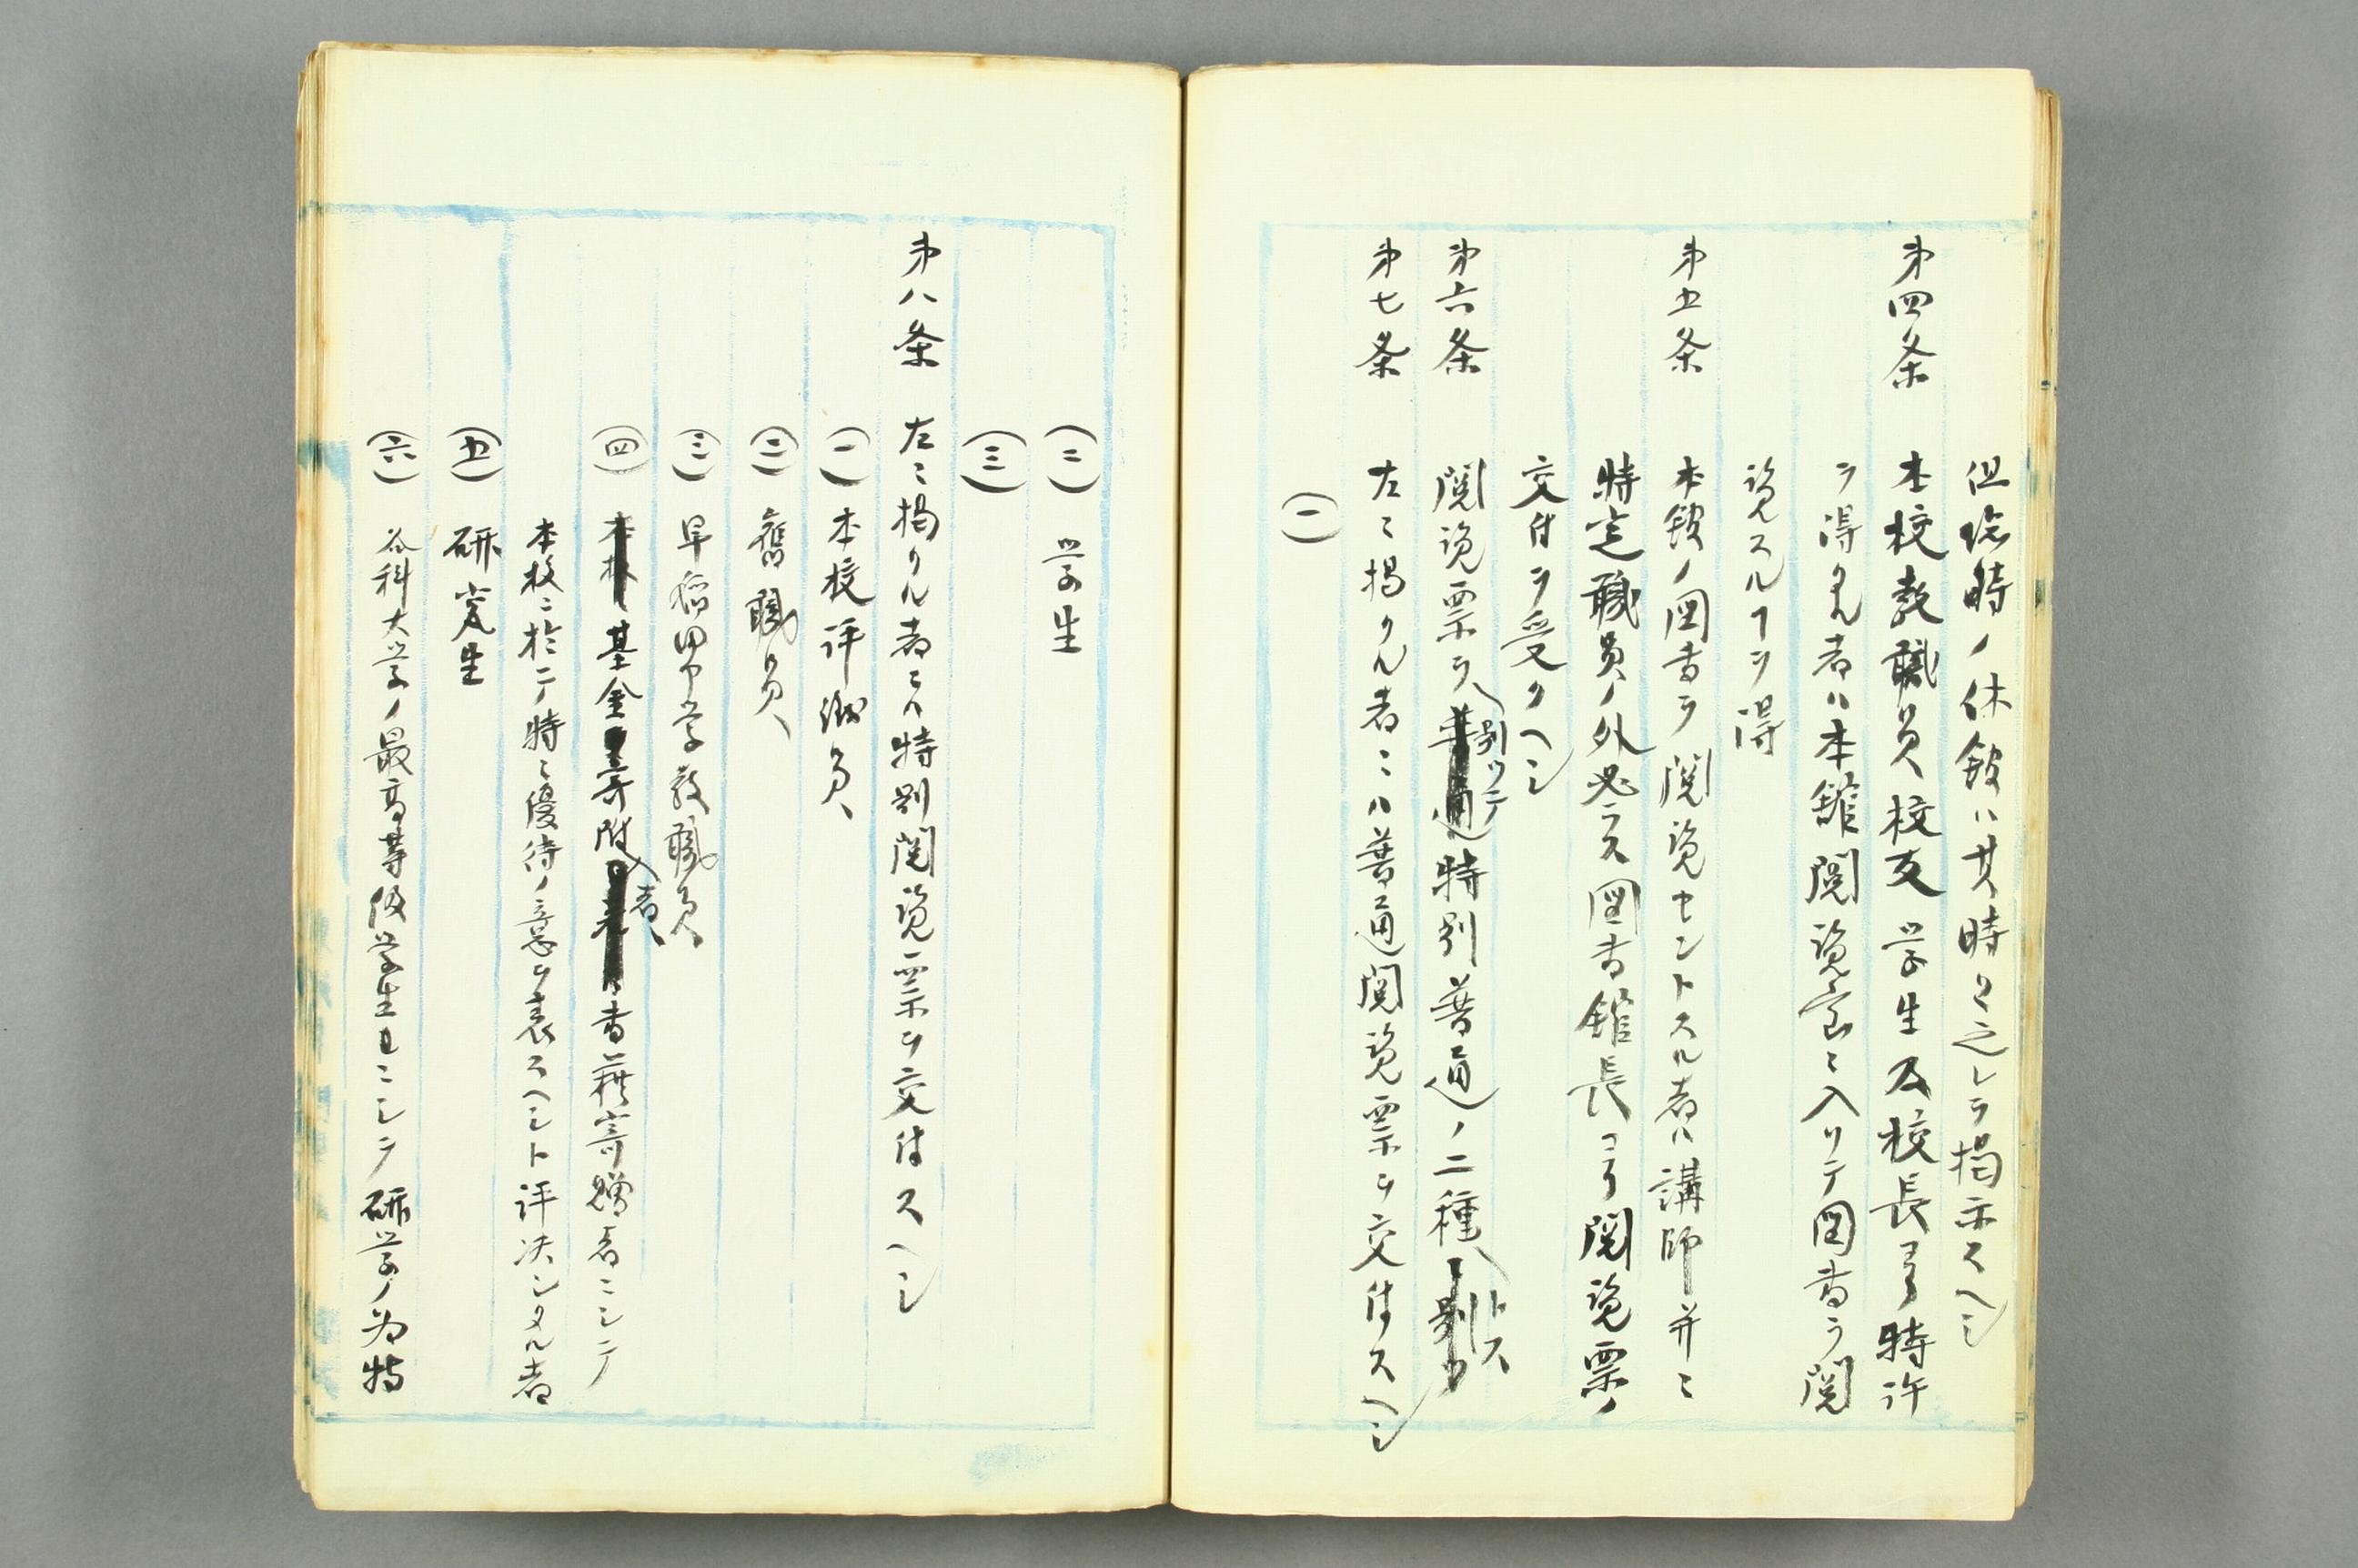 但臨時ノ休館ハ其時々之レヲ掲示スヘシ
第四条 本校教職員校友学生及校長ヨリ特許
ヲ得タル者ハ本館閲覧室ニ入リテ図書ヲ閲
覧スルヿヲ得
第五条 本館ノ図書ヲ閲覧セントスル者ハ講師并ニ
特定職員ノ外必ラス図書館長ヨリ閲覧票ノ
交付ヲ受クヘシ
第六条 閲覧票ヲ別ツテ特別普通ノ二種トス
第七条 左ニ掲クル者ニハ普通閲覧票ヲ交付スヘシ
(一)
(二) 学生
(三)
第八条 左ニ掲クル者ニハ特別閲覧票ヲ交付スヘシ
(一) 本校評議員
(二) 舊職員
(三) 早稲田中学教職員
(四) 基金寄附者、書籍寄贈者ニシテ
本校ニ於テ特ニ優待ノ意ヲ表スヘシト評決シタル者
(五) 研究生
(六) 各科大学ノ最高等級学生ニシテ研学ノ為特